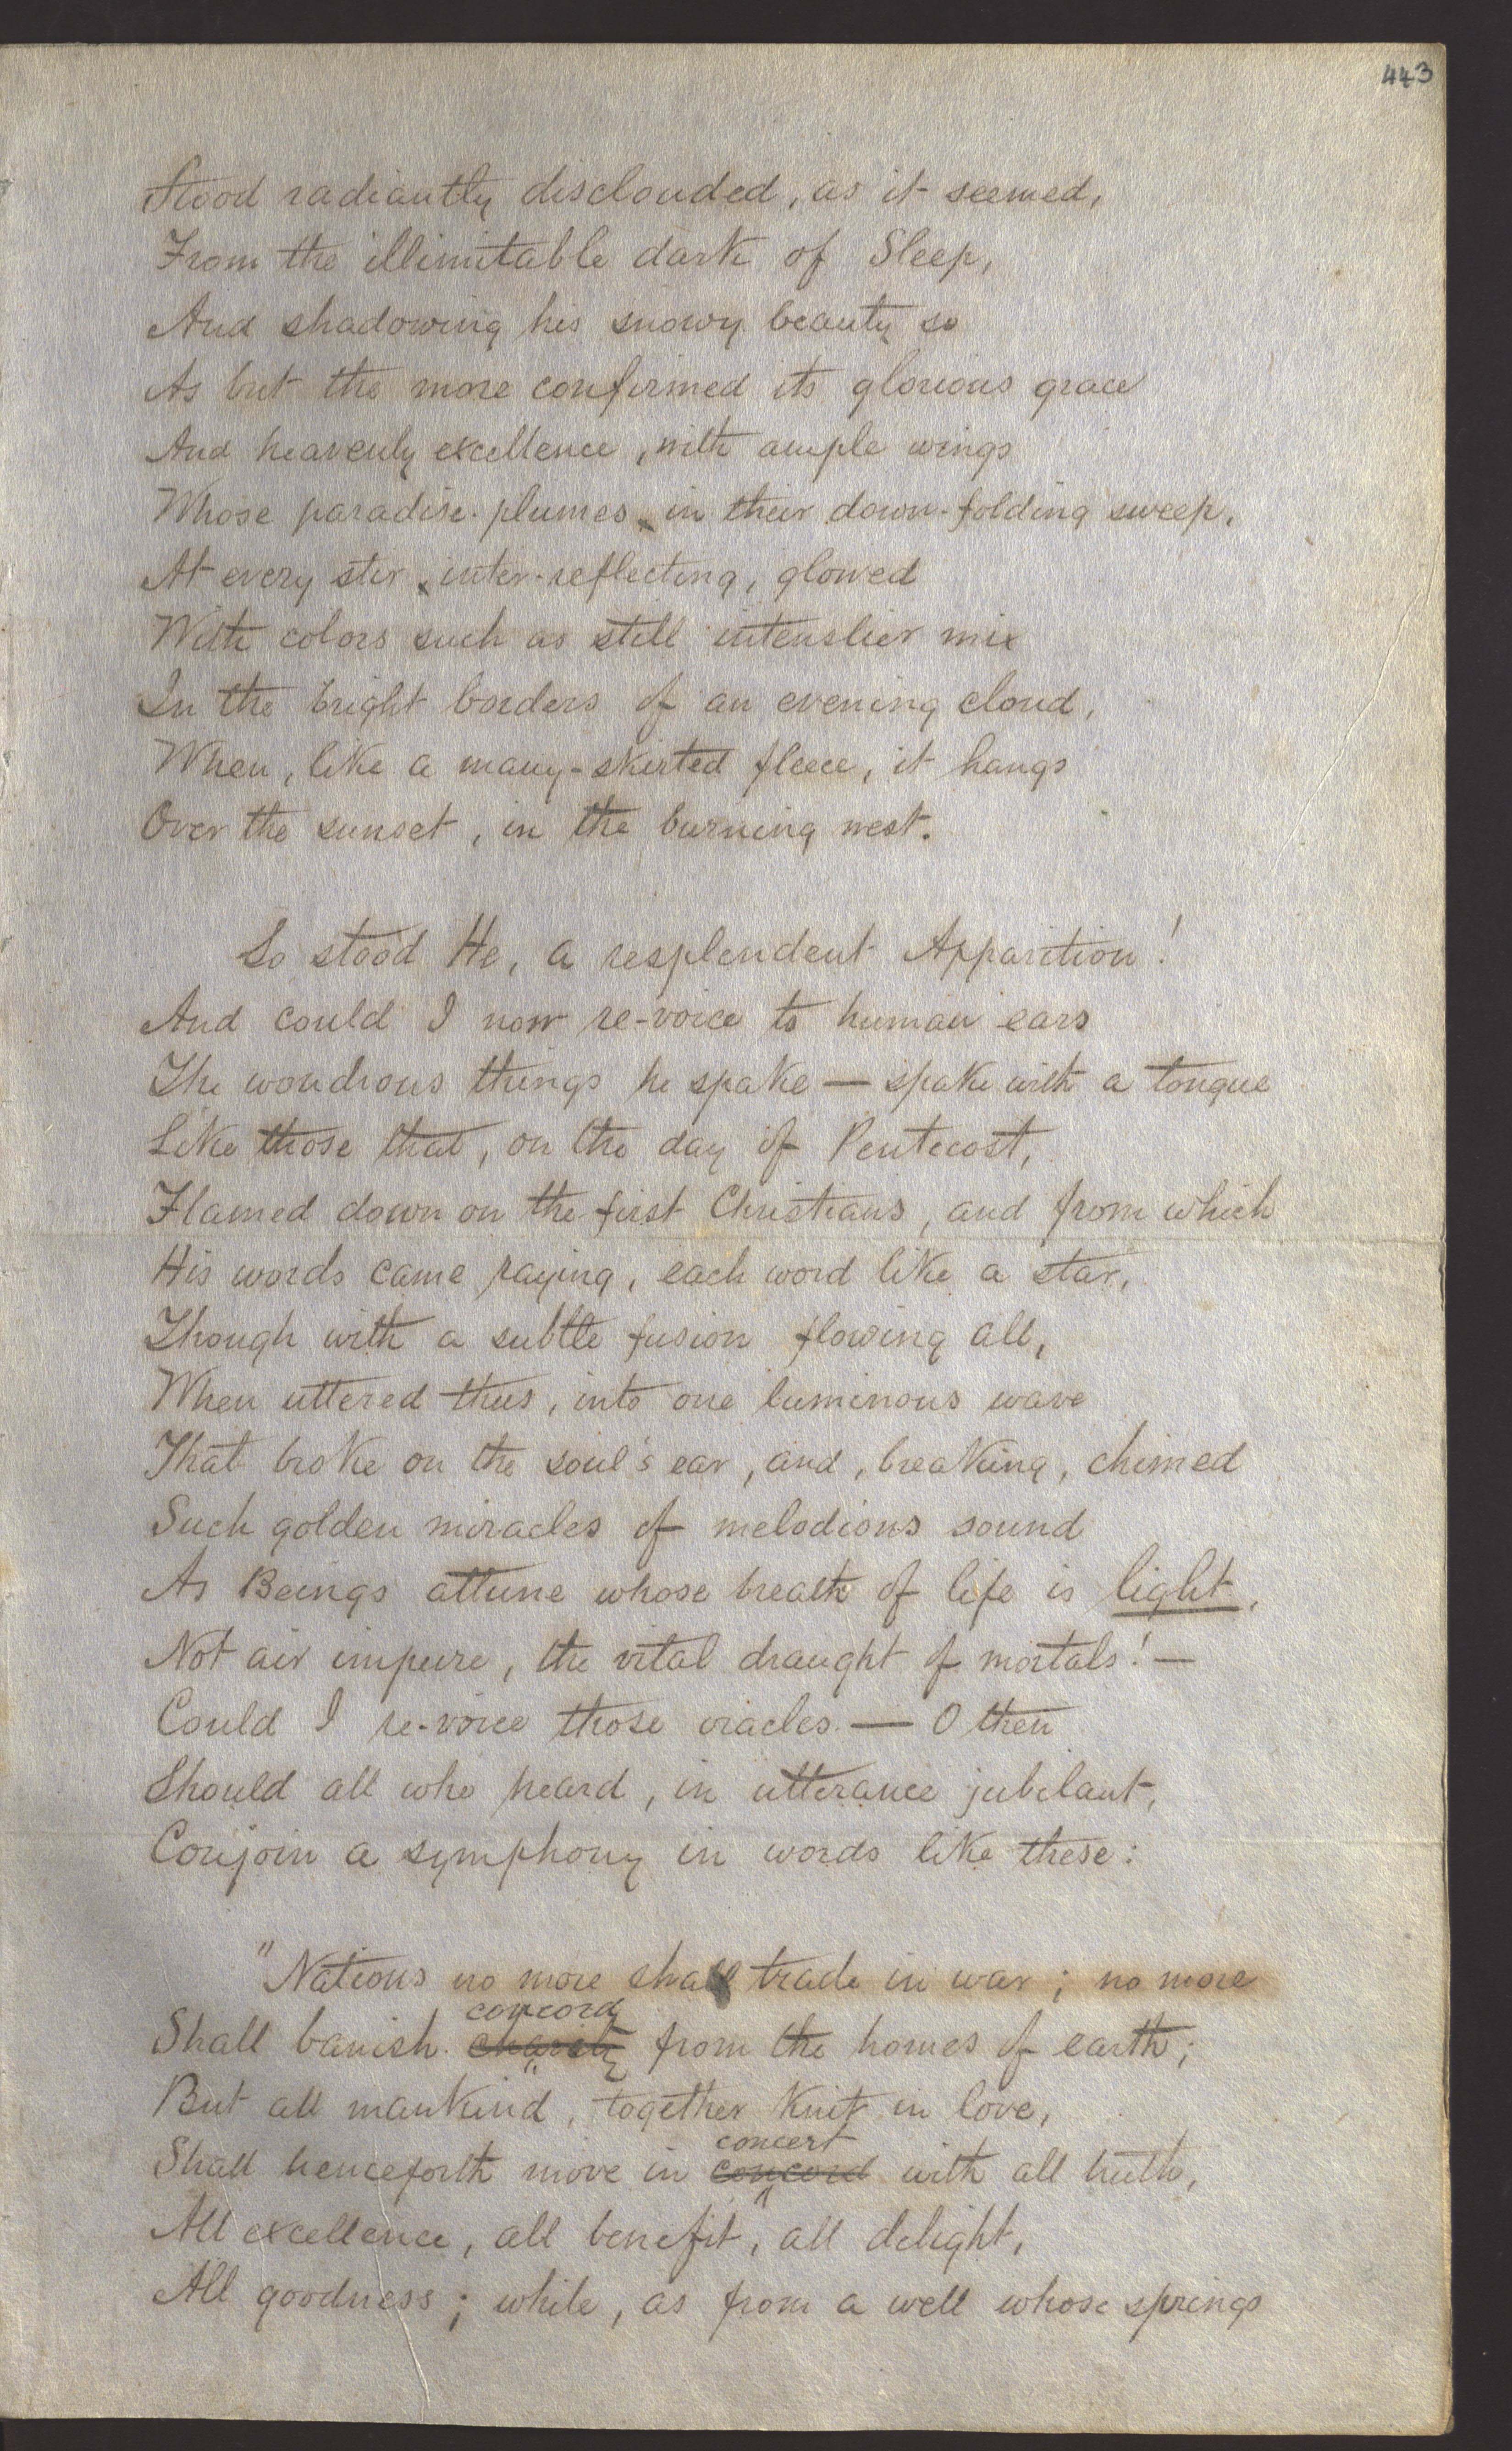 443
Stood radiantly disclouded, as it seemed,
From the illimitable dark of Sleep,
And shadowing his snowy beauty so
As but the more confirmed its glorious grace
And heavenly excellence, with ample wings
Whose paradise-plumes, in their down-folding sweep,
At every stir, inter-reflecting, glowed
With colors such as still intenslier mix
In the bright borders of an evening cloud,
When, like a many-skirted fleece, it hangs
Over the sunset, in the burning west.
So stood He, a resplendent Apparition!
And could I now re-voice to human ears
The wondrous things he spake — spake with a tongue
Like those that, on the day of Pentecost,
Flamed down on the first Christians, and from which
His words came raying, each word like a star,
Though with a subtle fusion flowing all,
When uttered thus, into one luminous wave
That broke on the soul's ear, and, breaking, chimed
Such golden miracles of melodious sound
As Beings attune whose breath of life is light,
Not air impure, the vital draught of mortals! —
Could I re-voice those oracles — O then
Should all who heard, in utterance jubilant,
Conjoin a symphony in words like these:
"Nations no more shall trade in war; no more
concord
Shall banish charity from the homes of earth;
But all mankind, together knit in love,
concert
Shall henceforth move in concord with all truth,
All excellence, all benefit, all delight,
All goodness; while, as from a well whose springs